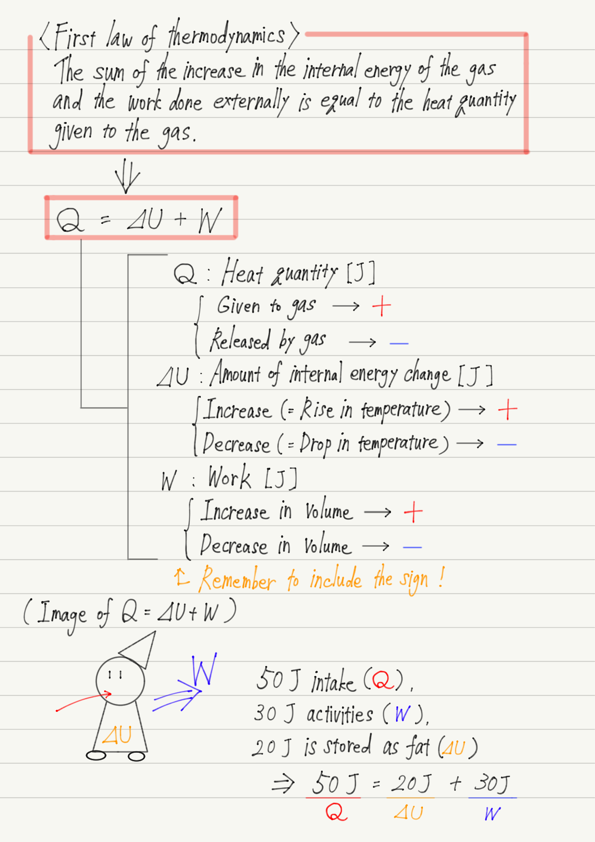 〈First law of thermodynamics〉
The sum of the increase in the internal energy of the gas
and the work done externally is equal to the heat quantity
given to the gas.
⇓
Q = ΔU + W
Q : Heat quantity [J]
Given to gas → +
Released by gas → −
ΔU : Amount of internal energy change [J]
Increase (= Rise in temperature) → +
Decrease (= Drop in temperature) → −
W : Work [J]
Increase in volume → +
Decrease in volume → −
↑ Remember to include the sign !
(Image of Q = ΔU + W)
W
ΔU
50 J intake (Q),
30 J activities (W),
20 J is stored as fat (ΔU)
⇒ 50 J = 20 J + 30 J
Q ΔU W